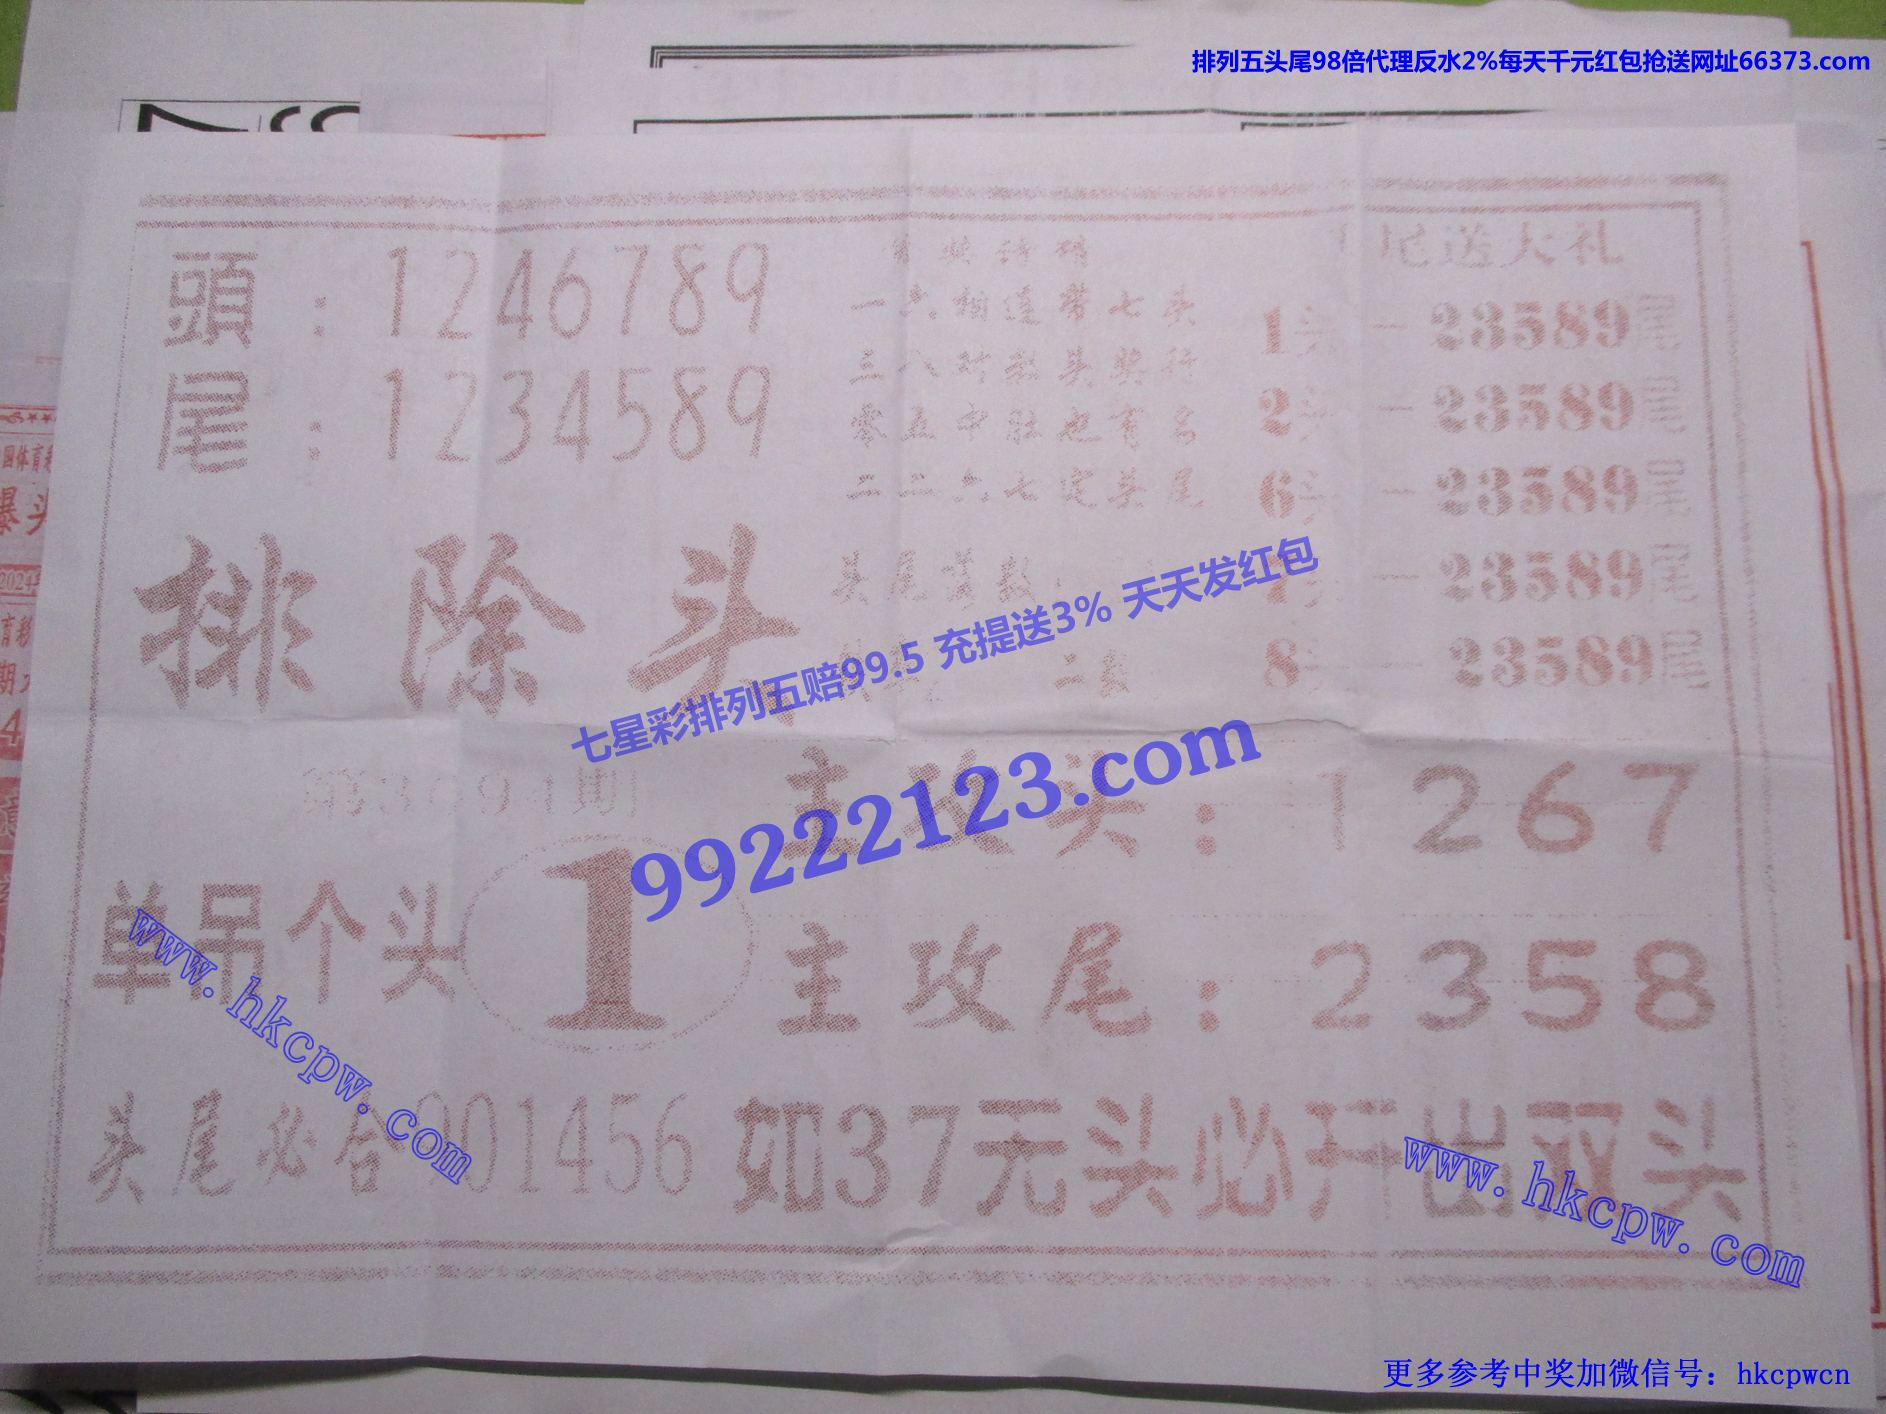 排列五头尾98倍代理反水2%每天千元红包抢送网址66373.com
頭：1246789
尾：1234589
排除头
单吊个头 1
头尾必合 001456
一六相连带七头
三八对数头奖行
零五中肚也有名
二二六七定头尾
头尾
二数
尾送大礼
1头一23589尾
2头一23589尾
6头一23589尾
7头一23589尾
8头一23589尾
七星彩排列五赔99.5 充提送3% 天天发红包
99222123.com
主攻头：1267
主攻尾：2358
如37无头必开出双头
www.hkcpw.com
www.hkcpw.com
更多参考中奖加微信号：hkcpwcn